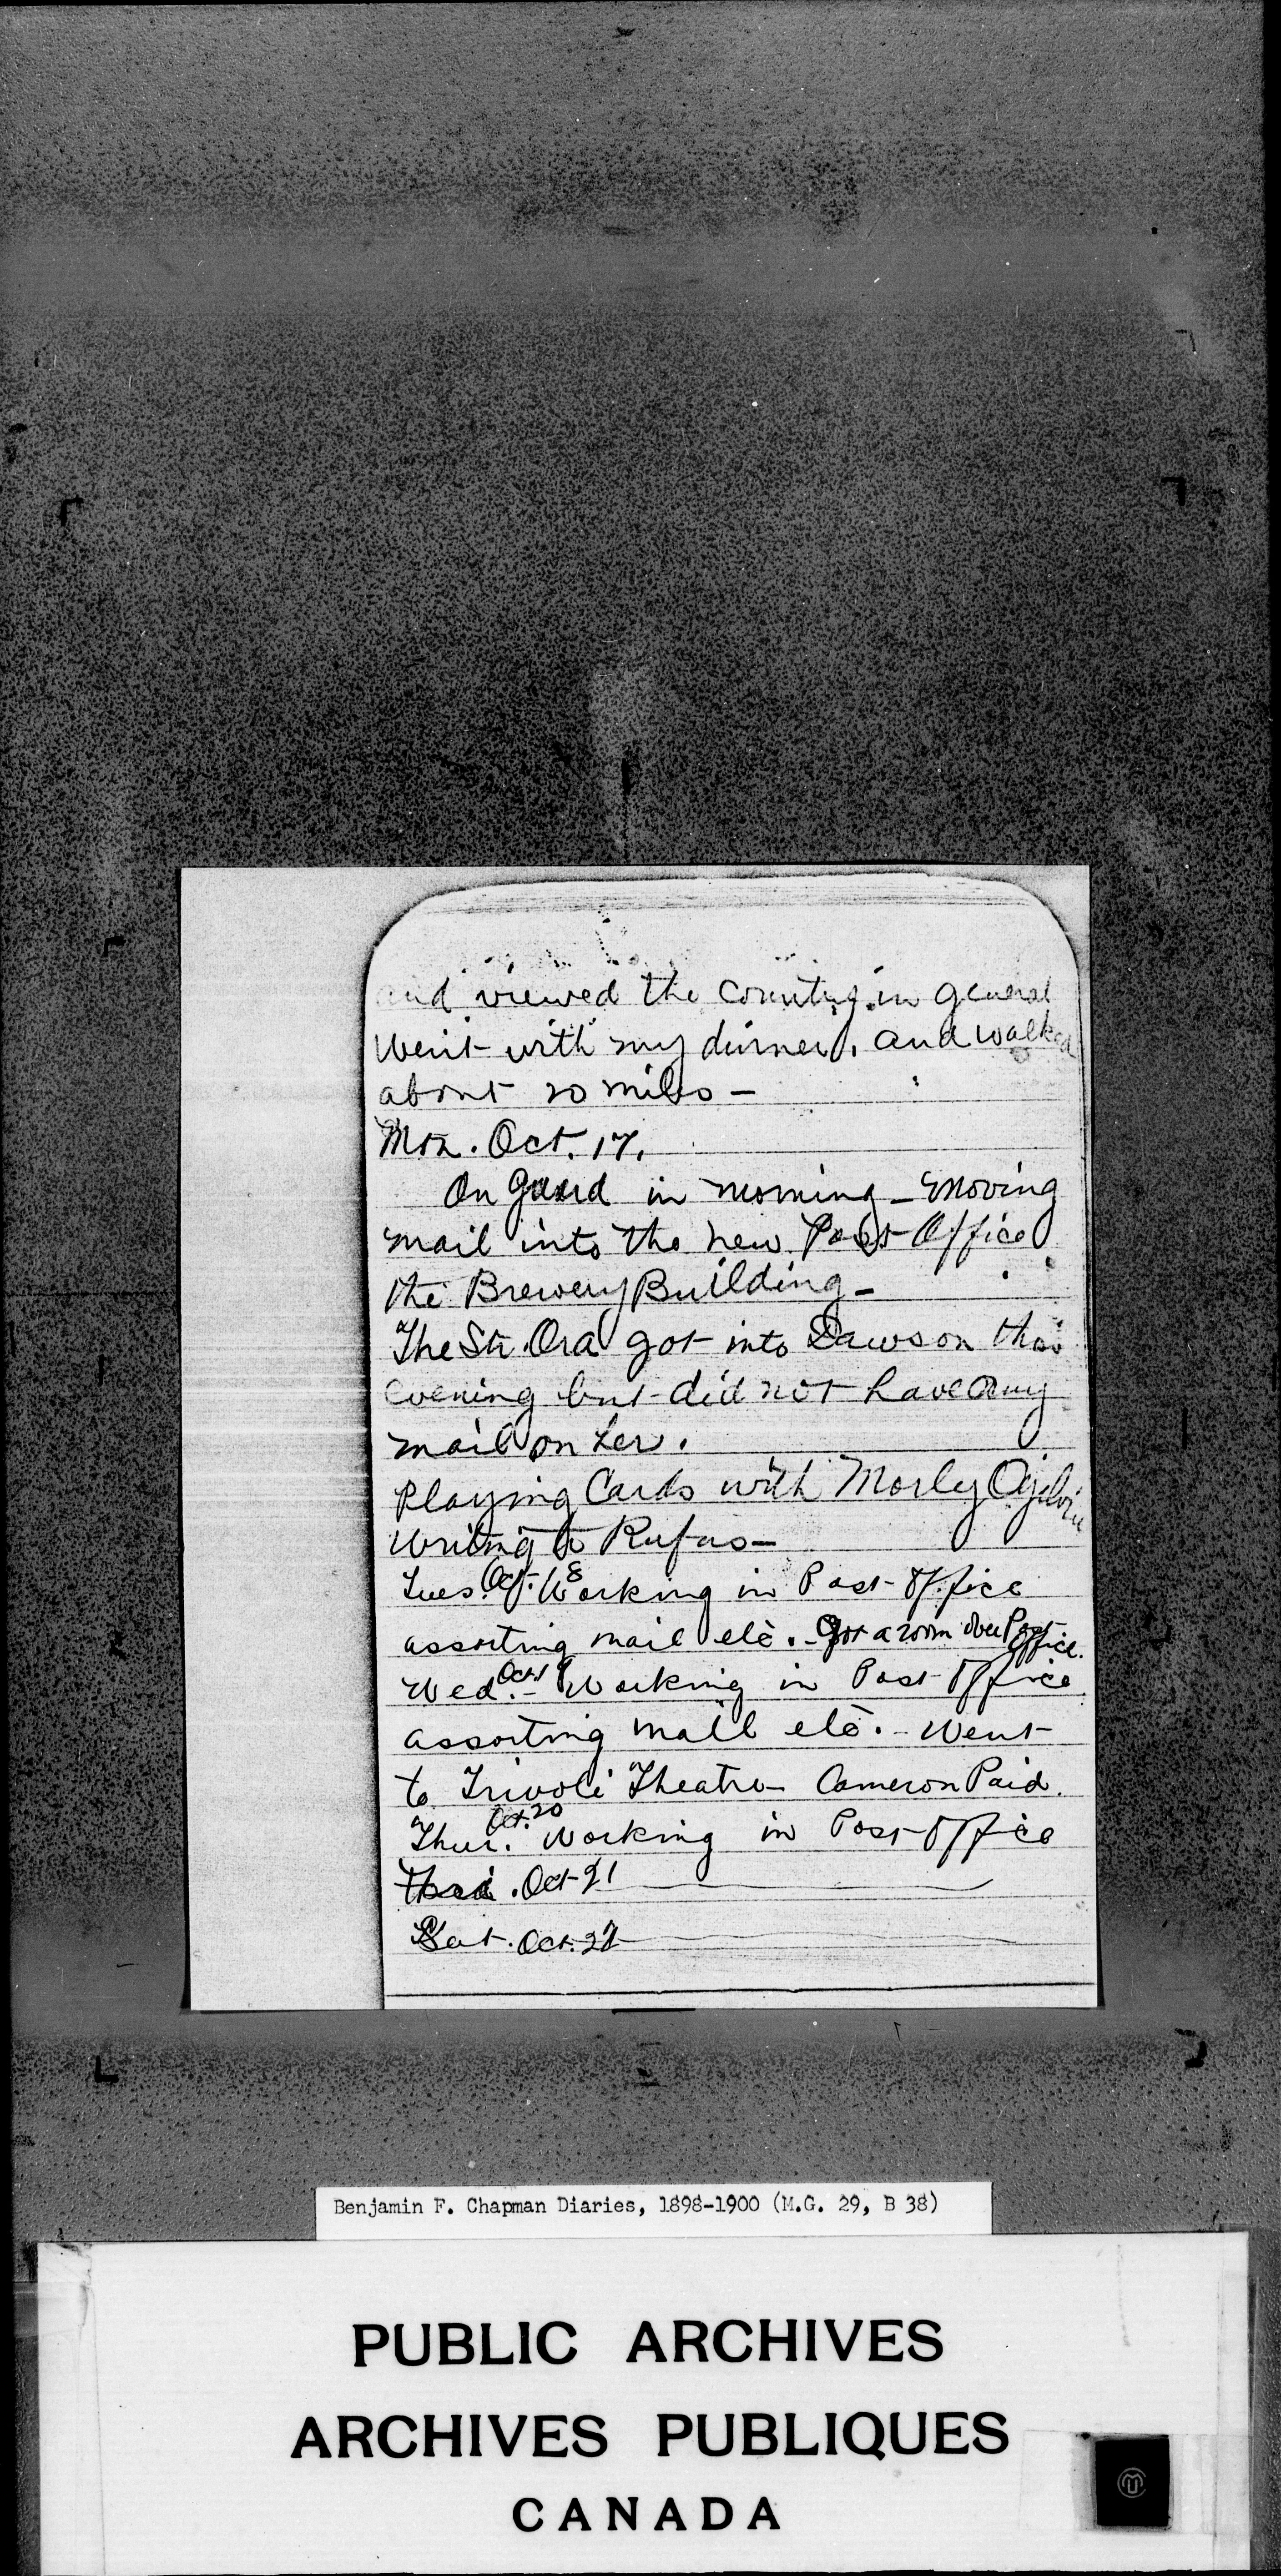 and viewed the country in general
Went with my dinner, and walked
about 20 miles —
Mon. Oct. 17.
On Guard in morning — moving
mail into the new Post Office
the Brewery Building —
The Str. Ora got into Dawson this
evening but did not have any
mail on her.
Playing Cards with Morly Ogilvie
Writing to Rufus —
Tues. Oct. 18 Working in Post Office
assorting mail etc. Got a room over Post Office.
Wed. Oct 19 — Working in Post Office
assorting mail etc. — Went
to Trivoli Theatre — Cameron Paid.
Thur. Oct. 20 Working in Post Office
Oct 21
Sat. Oct. 22
Benjamin F. Chapman Diaries, 1898-1900 (M.G. 29, B 38)
PUBLIC ARCHIVES
ARCHIVES PUBLIQUES
CANADA